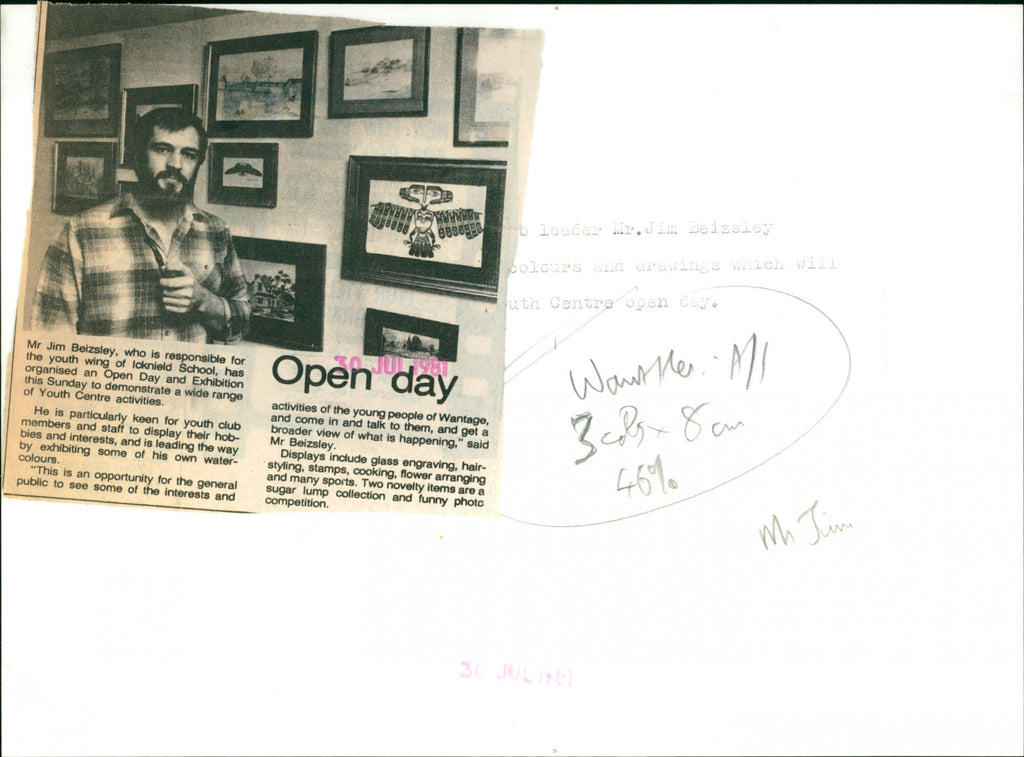 Mr Jim Beizsley, who is responsible for
the youth wing of Icknield School, has
organised an Open Day and Exhibition
this Sunday to demonstrate a wide range
of Youth Centre activities.
He is particularly keen for youth club
members and staff to display their hob-
bies and interests, and is leading the way
by exhibiting some of his own water-
colours.
"This is an opportunity for the general
public to see some of the interests and
30 JUL 1981
Open day
activities of the young people of Wantage,
and come in and talk to them, and get a
broader view of what is happening," said
Mr Beizsley.
Displays include glass engraving, hair-
styling, stamps, cooking, flower arranging
and many sports. Two novelty items are a
sugar lump collection and funny photo
competition.
b leader Mr.Jim Beizsley
colours and drawings which will
uth Centre open day.
3 cols x 8 cm
46%
Mr Jim
30 JUL 1981